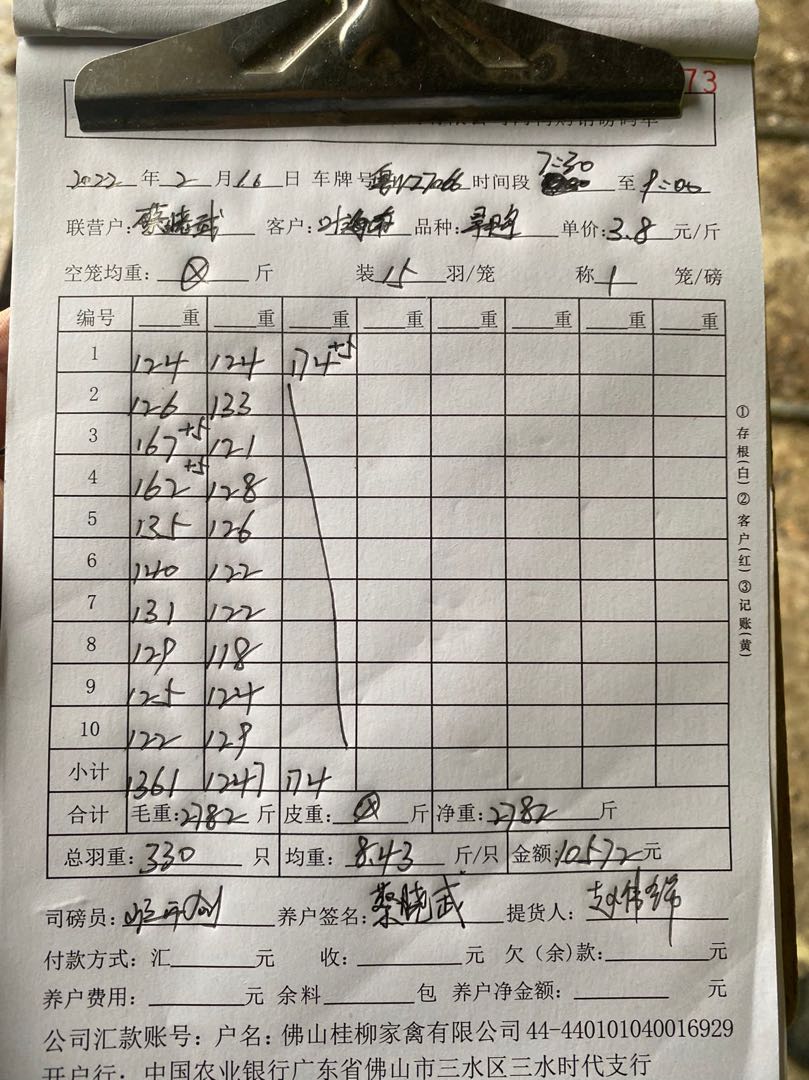 73
2022年2月16日 车牌号 27066 时间段 7:30 至 9:00
联营户: 蔡晓武 客户: 品种: 单价: 3.8 元/斤
空笼均重: ⊗ 斤 装 15 羽/笼 称 1 笼/磅
编号 重 重 重 重 重 重 重 重
1 124 124 174+5
2 126 133
3 167+5 121
4 162+5 128
5 135 126
6 140 122
7 131 122
8 129 118
9 125 124
10 122 129
小计 1361 1247 174
合计 毛重: 2782 斤 皮重: ⊗ 斤 净重: 2782 斤
总羽重: 330 只 均重: 8.43 斤/只 金额: 10572 元
司磅员: 养户签名: 蔡晓武 提货人: 赵伟锦
付款方式: 汇 元 收: 元 欠(余)款: 元
养户费用: 元 余料 包 养户净金额: 元
公司汇款账号: 户名: 佛山桂柳家禽有限公司 44-440101040016929
开户行: 中国农业银行广东省佛山市三水区三水时代支行
①存根(白)②客户(红)③记账(黄)